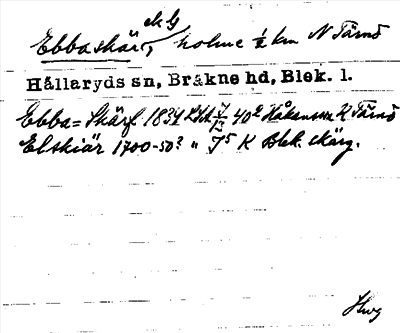 ek. bl.
Ebbaskär, holme ½ km N Tärnö
Hällaryds sn, Bräkne hd, Blek. l.
Ebba = Skärf 1834 40² Håkansson K Tärnö
Elskiär 1700-50? " J⁵ K Blek. skärg.
Hwg